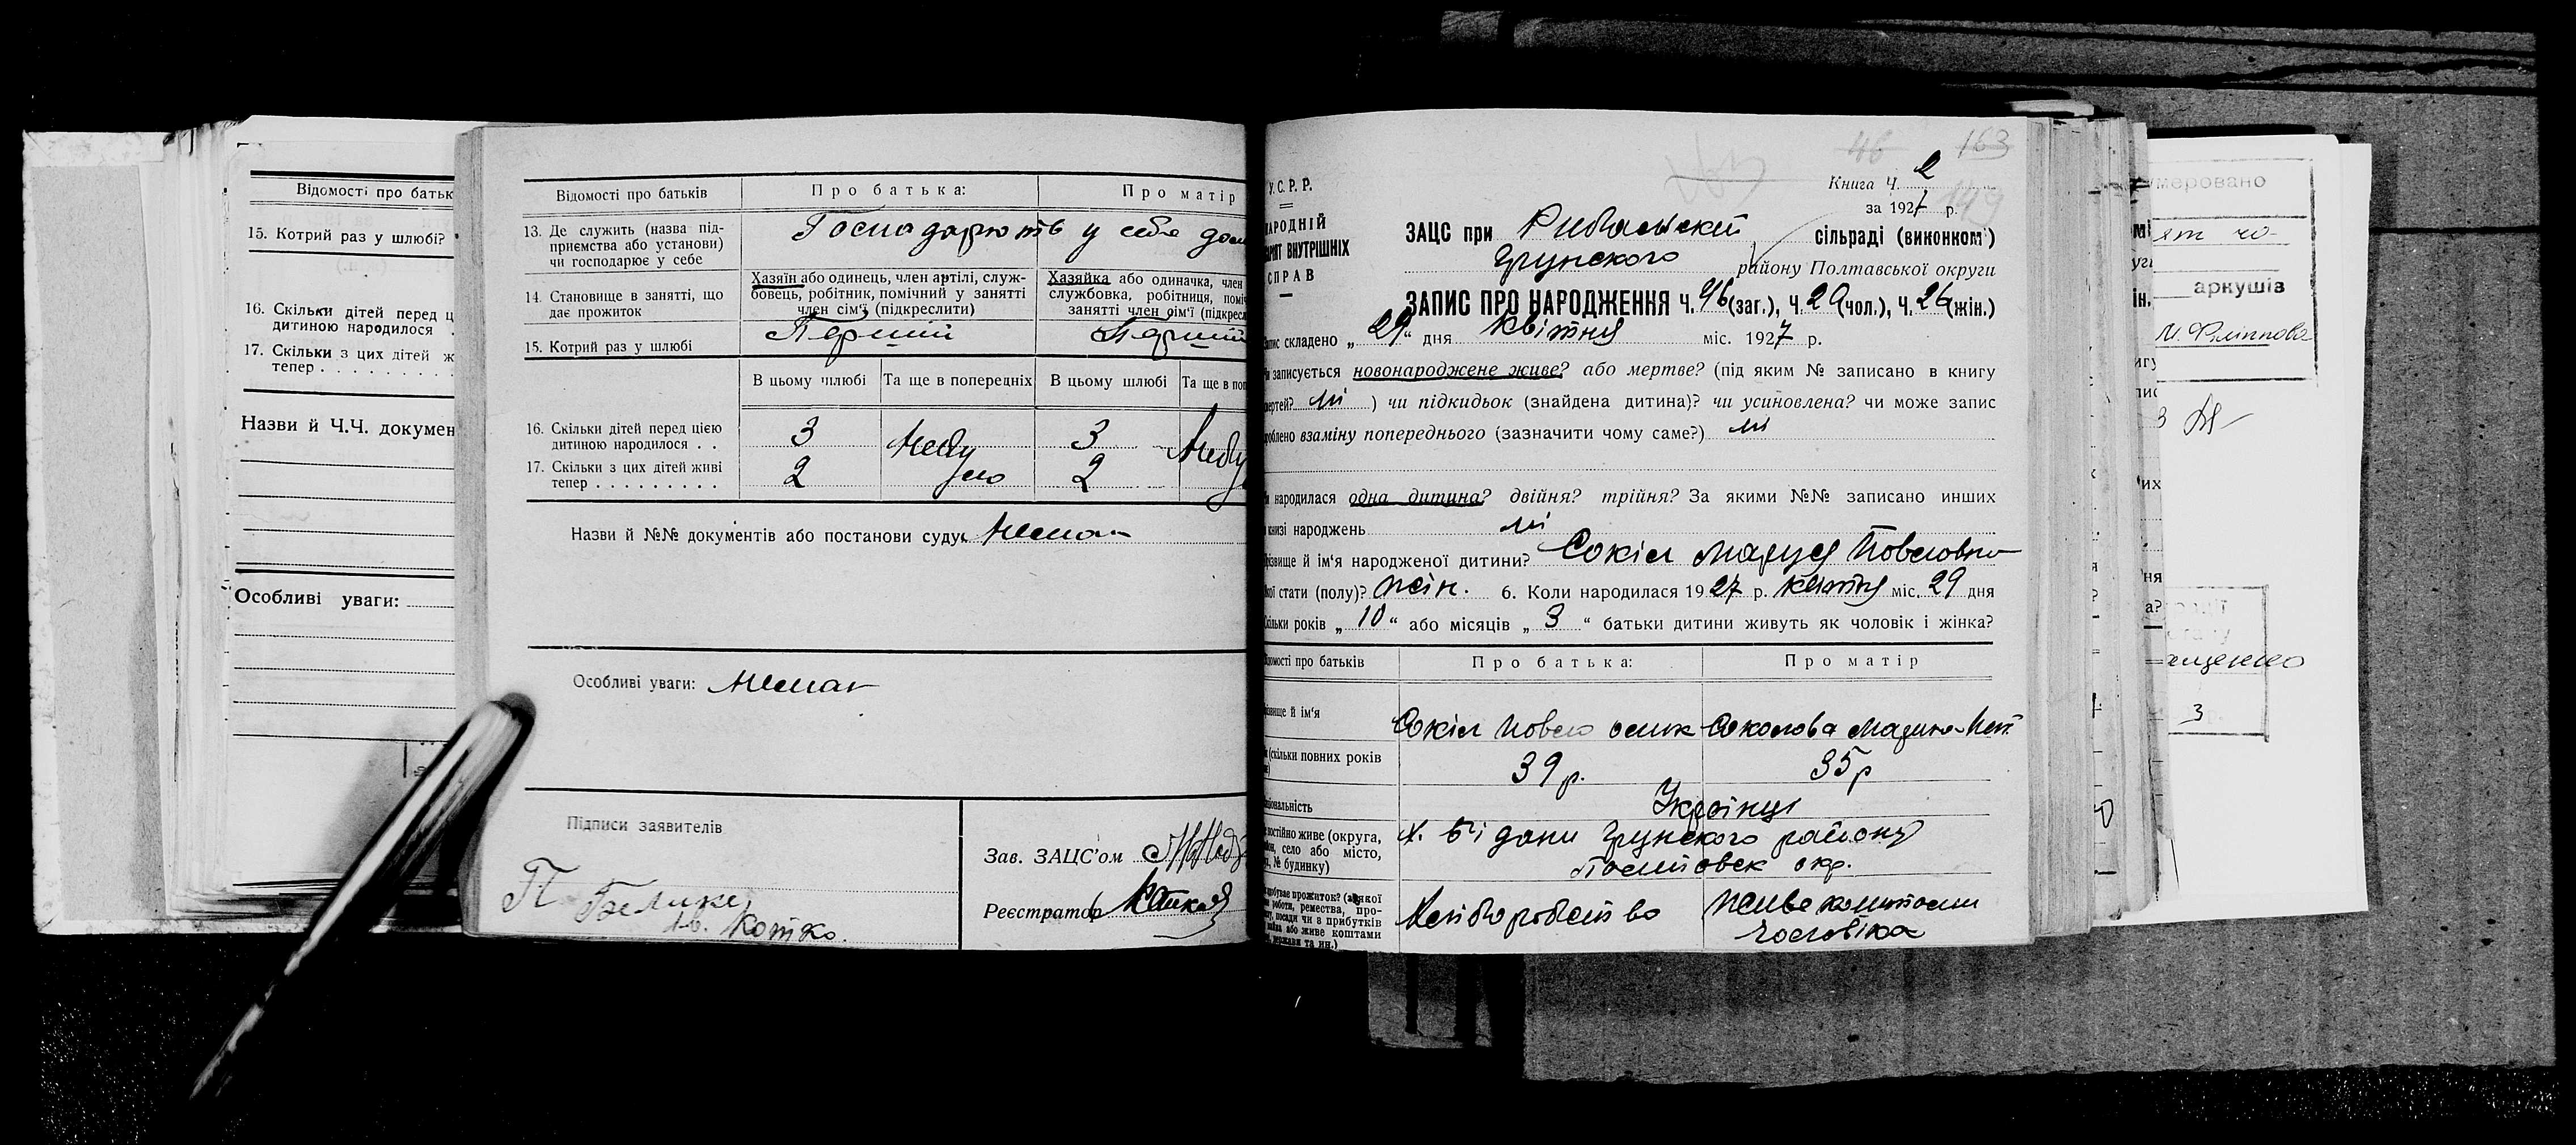 Відомості про батьк
15. Котрий раз у шлюбі?
16. Скільки дітей перед ц
дитиною народилося .
17. Скільки з цих дітей ж
тепер . . . . . . . . .
Назви й Ч.Ч. докумен
Особливі уваги:
Відомості про батьків
Про батька:
Про матір
13. Де служить (назва під-
приємства або установи)
чи господарює у себе
Господарють у себе дом
14. Становище в занятті, що
дає прожиток
Хазяїн або одинець, член артілі, служ-
бовець, робітник, помічний у занятті
член сім'ї (підкреслити)
Хазяйка або одиначка, член
службовка, робітниця, поміч
занятті член сім'ї (підкресл
15. Котрий раз у шлюбі
Перший
Перший
В цьому шлюбі
Та ще в попередніх
В цьому шлюбі
Та ще в поп
16. Скільки дітей перед цією
дитиною народилося . .
3
Небу
3
Небу
17. Скільки з цих дітей живі
тепер . . . . . . . . .
2
ло
2
Назви й №№ документів або постанови суду: Немає
Особливі уваги: Немає
Підписи заявителів
Зав. ЗАЦС'ом
Реєстратор
П
Котко
У.С.Р.Р.
НАРОДНІЙ
ВНУТРІШНІХ
СПРАВ
46 163
Книга Ч. 2
за 1927 р.
ЗАЦС при Рибальскій сільраді (виконком)
Грунского району Полтавської округи
ЗАПИС ПРО НАРОДЖЕННЯ Ч. 46 (заг.), Ч. 20 (чол.), Ч. 26 (жін.)
Запис складено „29" дня квітня міс. 1927 р.
записується новонароджене живе? або мертве? (під яким № записано в книгу
смертей? ні ) чи підкидьок (знайдена дитина)? чи усиновлена? чи може запис
зроблено взаміну попереднього (зазначити чому саме?) ні
народилася одна дитина? двійня? трійня? За якими №№ записано инших
книзі народжень ні
Прізвище й ім'я народженої дитини? Сокіл Маруся Повловна
якої стати (полу)? жін. 6. Коли народилася 1927 р. квітня міс. 29 дня
Скільки років „10" або місяців „3" батьки дитини живуть як чоловік і жінка?
Відомості про батьків
Про батька:
Про матір
Прізвище й ім'я
Сокіл Повло
Соколова Марина
(скільки повних років
39 р.
35 р
національність
Українці
постійно живе (округа,
село або місто,
№ будинку)
х. Грунского району
Полтовск окр.
прожиток? (з якої
роботи, ремества, про-
посади чи з прибутків
або живе коштами
держави та ин.)
Хліборобство
живе коштом
чоловіка
меровано
аркушів
М. Філіппова
3